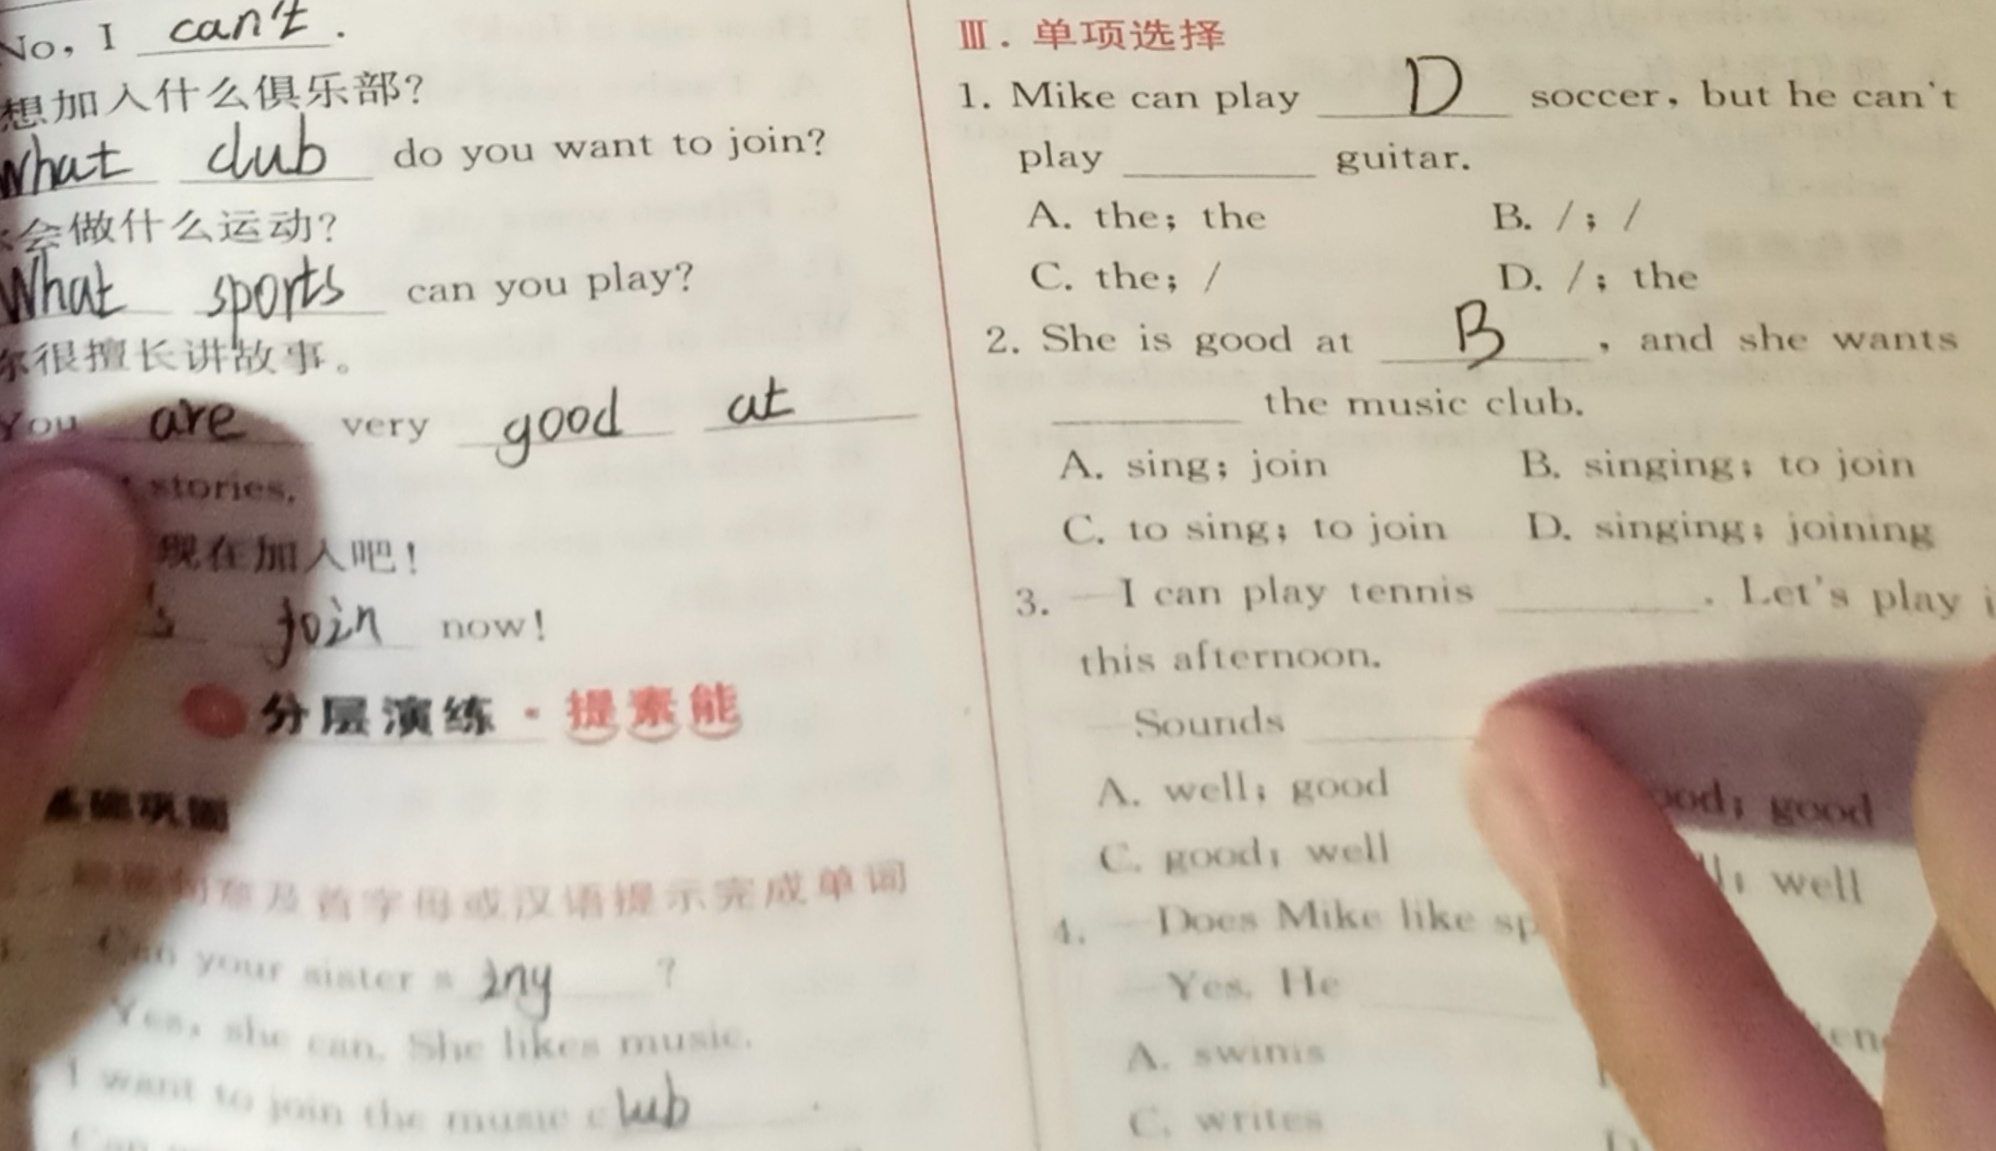 No, I can't.
想加入什么俱乐部?
What club do you want to join?
会做什么运动?
What sports can you play?
你很擅长讲故事。
You are very good at
stories.
现在加入吧!
join now!
分层演练·提素能
基础巩固
根据句意及首字母或汉语提示完成单词
Can your sister sing?
Yes, she can. She likes music.
I want to join the music club.
Can
Ⅲ. 单项选择
1. Mike can play D soccer, but he can't
play ______ guitar.
A. the; the B. /; /
C. the; / D. /; the
2. She is good at B, and she wants
______ the music club.
A. sing; join B. singing; to join
C. to sing; to join D. singing; joining
3. —I can play tennis ______. Let's play
this afternoon.
—Sounds ______
A. well; good good; good
C. good; well well
4. —Does Mike like
—Yes. He ______
A. swims
C. writes